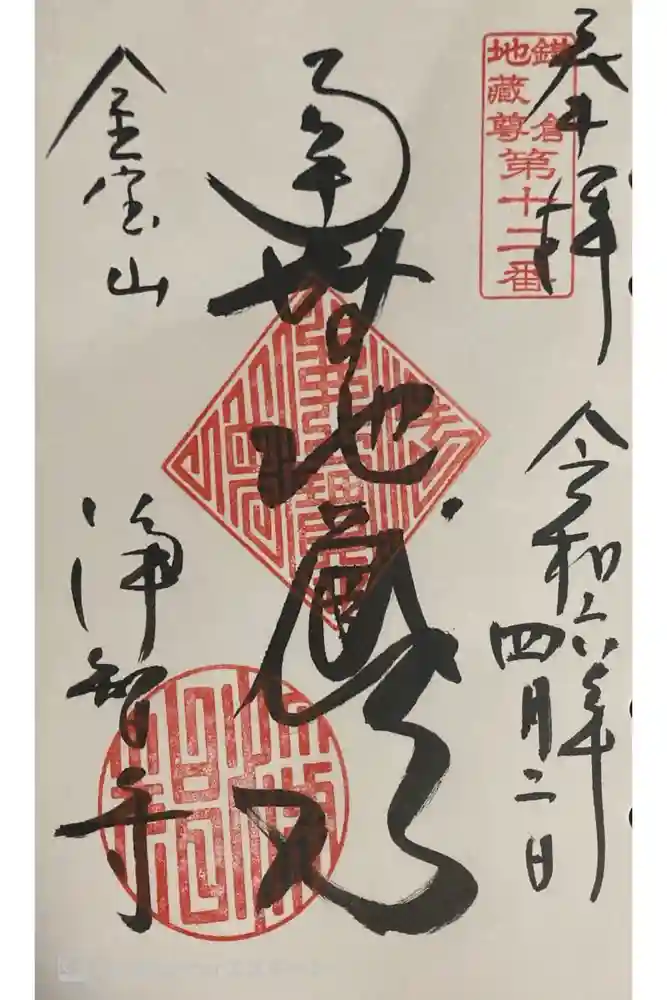 奉拝
鎌倉
地蔵尊
第十二番
令和六年
四月二日
南無地蔵
金宝山
浄智寺